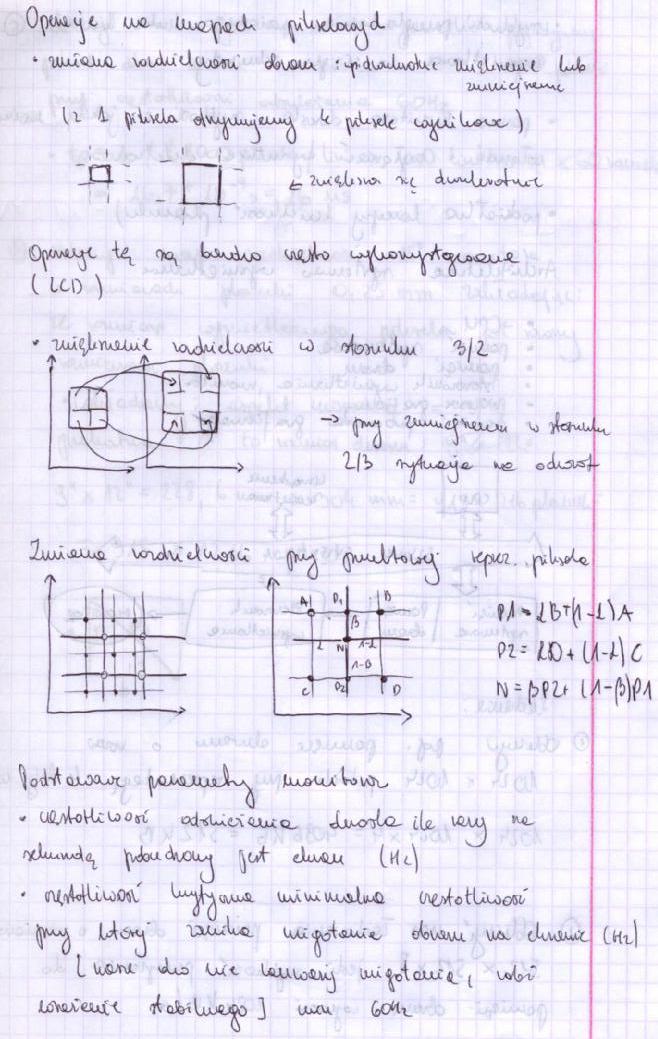 Operacje na mapach pikselowych
• zmiana rozdzielczości obrazu : np. dwukrotne zwiększenie lub
zmniejszenie
(z 1 piksela otrzymujemy 4 piksele wynikowe)
← zwiększa się dwukrotnie
Operacje tę są bardzo często wykorzystywane
(LCD)
• zwiększenie rozdzielczości w stosunku 3/2
→ przy zmniejszeniu w stosunku
2/3 sytuacja na odwrót
Zmiana rozdzielczości przy punktowej reprez. piksela
A P1 B
β
α N 1-α
1-β
C P2 D
P1 = αB+(1-α)A
P2 = αD+(1-α)C
N = βP2+(1-β)P1
Podstawowe parametry monitorów
• częstotliwość odświeżania określa ile razy na
sekundę pobudzony jest ekran (Hz)
• częstotliwość krytyczna minimalna częstotliwość
przy której zanika migotanie obrazu na ekranie (Hz)
[nasze oko nie zauważy migotania, robi
wrażenie stabilnego] min 60Hz